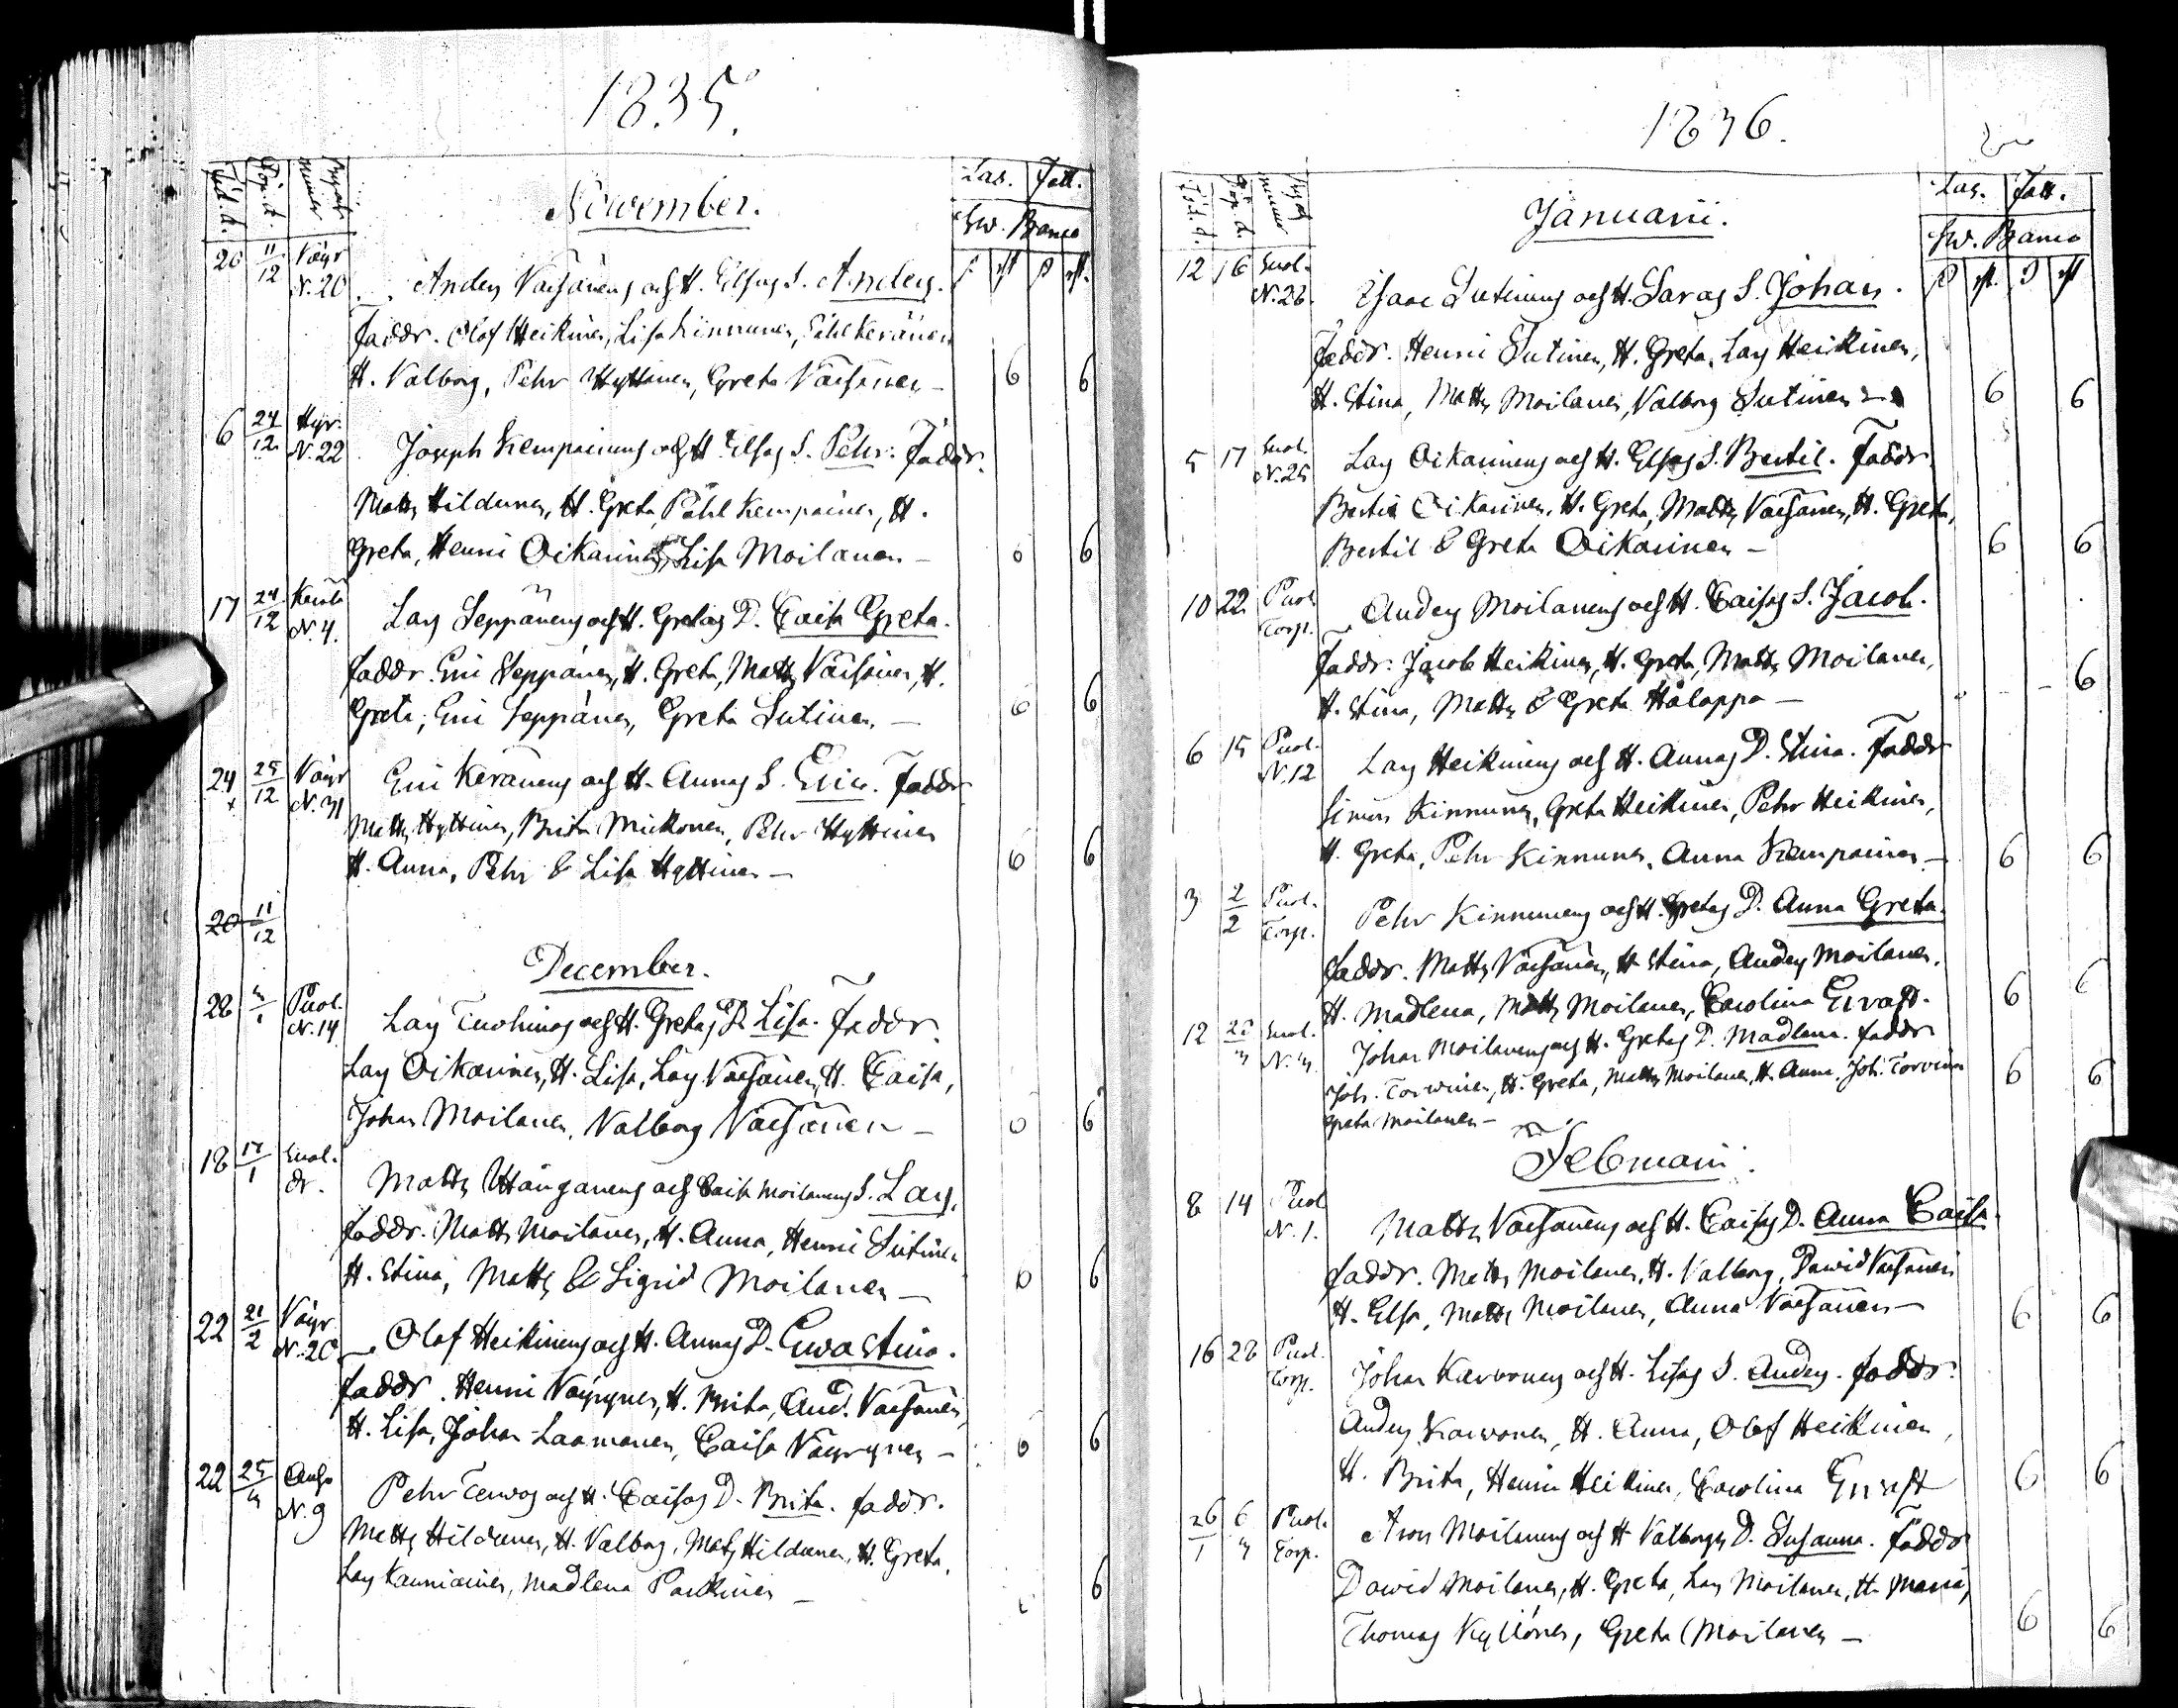 1835.
Föd. d. Döp. d. Byns nummer
November.
Las. Fatt.
Sw. Banco
20 11/12 Väyr N. 20 Anders Väisänens och H. Elsas S. Anders.
Faddr. Olof Heikinen, Lisa Kinnunen, Påhl Keränen
H. Valborg, Pehr Hyttinen, Greta Väisänen — 6 6
6 24/12 Hyr. N. 22 Joseph Kempainens och H. Elsas S. Pehr. Faddr.
Matts Hildunen, H. Greta, Påhl Kempainen, H.
Greta, Henric Oikarinen, Lisa Moilanen — 6 6
17 24/12 N. 4. Lars Seppänens och H. Gretas D. Caisa Greta.
Faddr. Eric Seppänen, H. Greta, Matts Väisänen, H.
Greta, Eric Seppänen, Greta Sutinen — 6 6
24 25/12 Väyr N. 31 Eric Keränens och H. Annas S. Eric. Faddr.
Matts Hyttinen, Brita Mickonen, Pehr Hyttinen
H. Anna, Pehr & Lisa Hyttinen — 6 6
20 11/12
December.
28 3/1 Puol. N. 14 Lars Tuohinos och H. Gretas D. Lisa. Faddr.
Lars Oikarinen, H. Lisa, Lars Väisänen, H. Caisa,
Johan Moilanen, Valborg Väisänen — 6 6
18 17/1 Suol. dr. Matts Hänganens och Caisa Moilanens S. Lars.
Faddr. Matts Moilanen, H. Anna, Henric Sutinen
H. Stina, Matts & Sigrid Moilanen — 6 6
22 21/2 Väyr. N. 20 Olof Heikinens och H. Annas D. Ewa Stina.
Faddr. Henric Väyrynen, H. Brita, And. Väisänen,
H. Lisa, Johan Laamanen, Caisa Väyrynen — 6 6
22 25/3 N. 9 Pehr Terwos och H. Caisas D. Brita. Faddr.
Matts Hildunen, H. Valborg, Matts Hildunen, H. Greta,
Lars Kauniainen, Madlena Parkinen — 6
1836.
Föd. d. Döp. d. Byns nummer
Januarii.
Las. Fatt.
Sw. Banco
12 16 Suol. N. 28 Isaac Sutinens och H. Saras S. Johan.
Faddr. Henric Sutinen, H. Greta, Lars Heikinen,
H. Stina, Matts Moilanen, Valborg Sutinen — 6 6
5 17 Suol. N. 25 Lars Oikarinens och H. Elsas S. Bertil. Faddr.
Bertil Oikarinen, H. Greta, Matts Väisänen, H. Greta,
Bertil & Greta Oikarinen — 6 6
10 22 Puol. Torp. Anders Moilanens och H. Caisas S. Jacob.
Faddr. Jacob Heikinen, H. Greta, Matts Moilanen,
H. Stina, Matts & Greta Hålappa — 6
6 15 Puol. N. 12 Lars Heikinens och H. Annas D. Stina. Faddr
Simon Kinnunen, Greta Heikinen, Pehr Heikinen,
H. Greta, Pehr Kinnunen, Anna Kempainen — 6 6
3 2/2 Puol. Torp. Pehr Kinnunens och H. Gretas D. Anna Greta.
Faddr. Matts Väisänen, H. Stina, Anders Moilanen,
H. Madlena, Matts Moilanen, Carolina Ervast. 6 6
12 28/3 Suol. N. 3 Johan Moilanens och H. Gretas D. Madlena. Faddr
Joh. Torwinen, H. Greta, Matts Moilanen, H. Anna, Joh. Torvinen 6 6
Greta Moilanen —
Februarii.
8 14 Puol N. 1. Matts Väisänens och H. Caisas D. Anna Caisa.
Faddr. Matts Moilanen, H. Valborg, Dawid Väisänen
H. Elsa, Matts Moilanen, Anna Väisänen — 6 6
16 28 Puol. Torp. Johan Karvonens och H. Lisas S. Anders. Faddr.
Anders Karvonen, H. Anna, Olof Heikinen,
H. Brita, Henric Heikinen, Carolina Ervast 6 6
26/1 6/3 Puol. Torp. Aron Moilanens och H. Valborgs D. Susanna. Faddr
Dawid Moilanen, H. Greta, Lars Moilanen, H. Maria,
Thomas Kyllönen, Greta Moilanen — 6 6